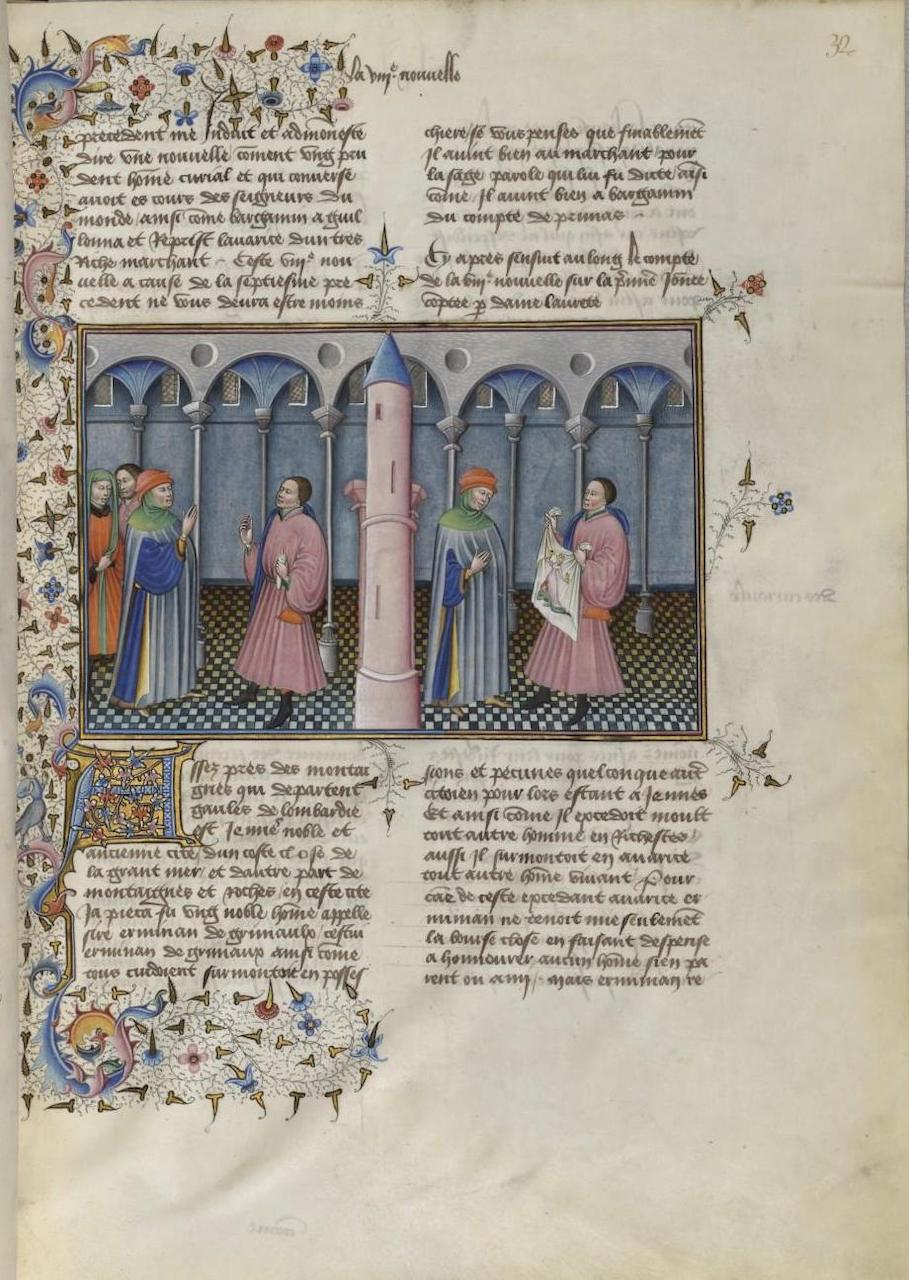 32
la viije nouvelle
precedent me Induit et admoneste
dire vne nouvelle coment vng pru
dent home curial et qui converse
auoit es cours des seigneurs du
monde / ainsi come bargamin aguil
lonna et Reprist lauarice dun tres
Riche marchant. Ceste viije nou
uelle a cause de la septiesme pre
cedent ne vous deura estre moins
chiere se vous penses que finablemet
Il auint bien au marchant pour
la sage parole qui lui fu dicte aisi
come Il auint bien a bargamin
du compte de primas
Cy apres sensuit au long le compte
de la viije nouvelle sur la pmie Jornee
coptee p dame laurete
Assez pres des montai
gnes qui departent
gaules de lombardie
est Jenne noble et
ancienne cite dun coste close de
la grant mer et dautre part de
montaignes et roches / en ceste cite
Ja pieca fu vng noble home appelle
sire erminan de grimaulx cestui
erminan de grimaux ainsi come
tous cuidoient surmontoit en posses
sions et pecunes quelconque autre
citoien pour lors estant a Jennes
Et ainsi come Il excedoit moult
tout autre homme en Richesses
aussi Il surmontoit en auarice
tout autre home viuant / Pour
cae de ceste excedant auarice er
minan ne tenoit mie seulemet
la bourse close en faisant despense
a honnourer aucun home sien pa
rent ou ami / mais erminan re